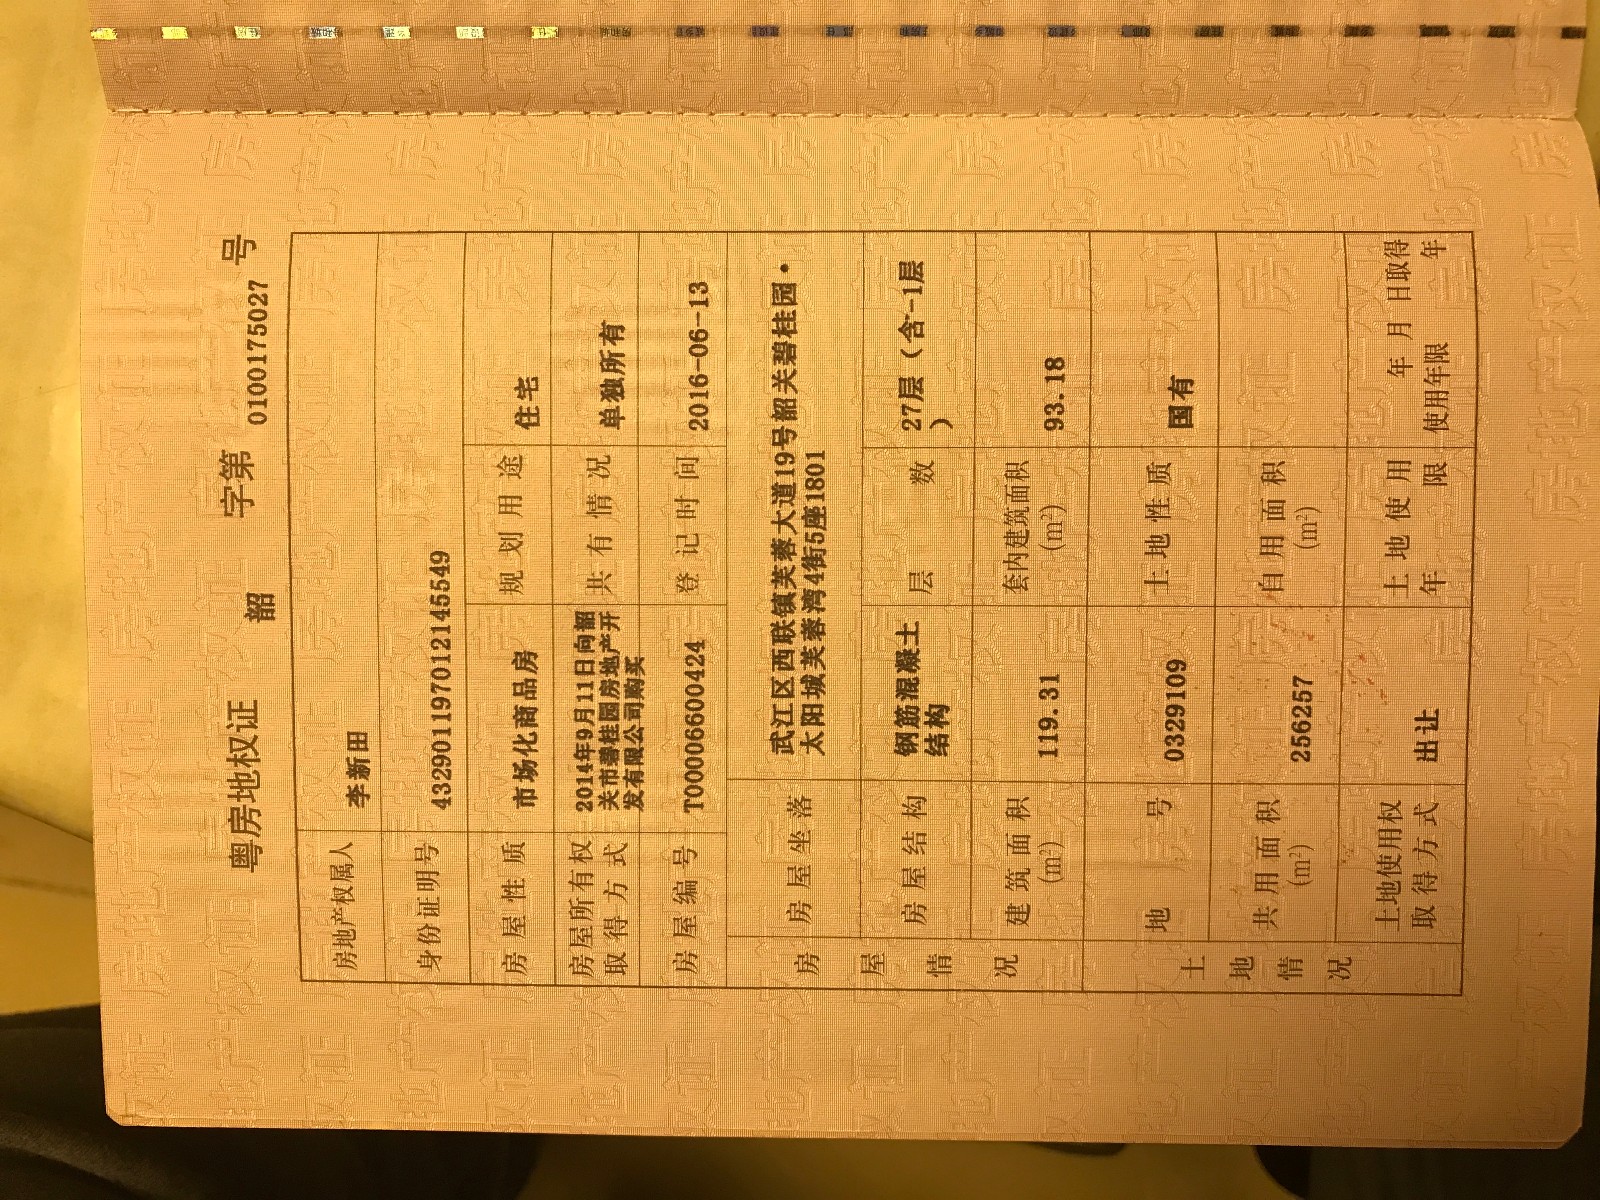 粤房地权证 韶 字第 0100175027 号
房地产权属人 李新田
身份证明号 432901197012145549
房屋性质 市场化商品房 规划用途 住宅
房屋所有权 2014年9月11日向韶 共有情况 单独所有
取得方式 关市碧桂园房地产开
发有限公司购买
房屋编号 T00006600424 登记时间 2016-06-13
房屋情况
房屋坐落 武江区西联镇芙蓉大道19号韶关碧桂园•
太阳城芙蓉湾4街5座1801
房屋结构 钢筋混凝土 层数 27层（含-1层
结构 ）
建筑面积 119.31 套内建筑面积 93.18
(m²) (m²)
土地情况
地号 0329109 土地性质 国有
共用面积 256257 自用面积
(m²) (m²)
土地使用权 出让 土地使用 年 月 日取得
取得方式 年限 使用年限 年